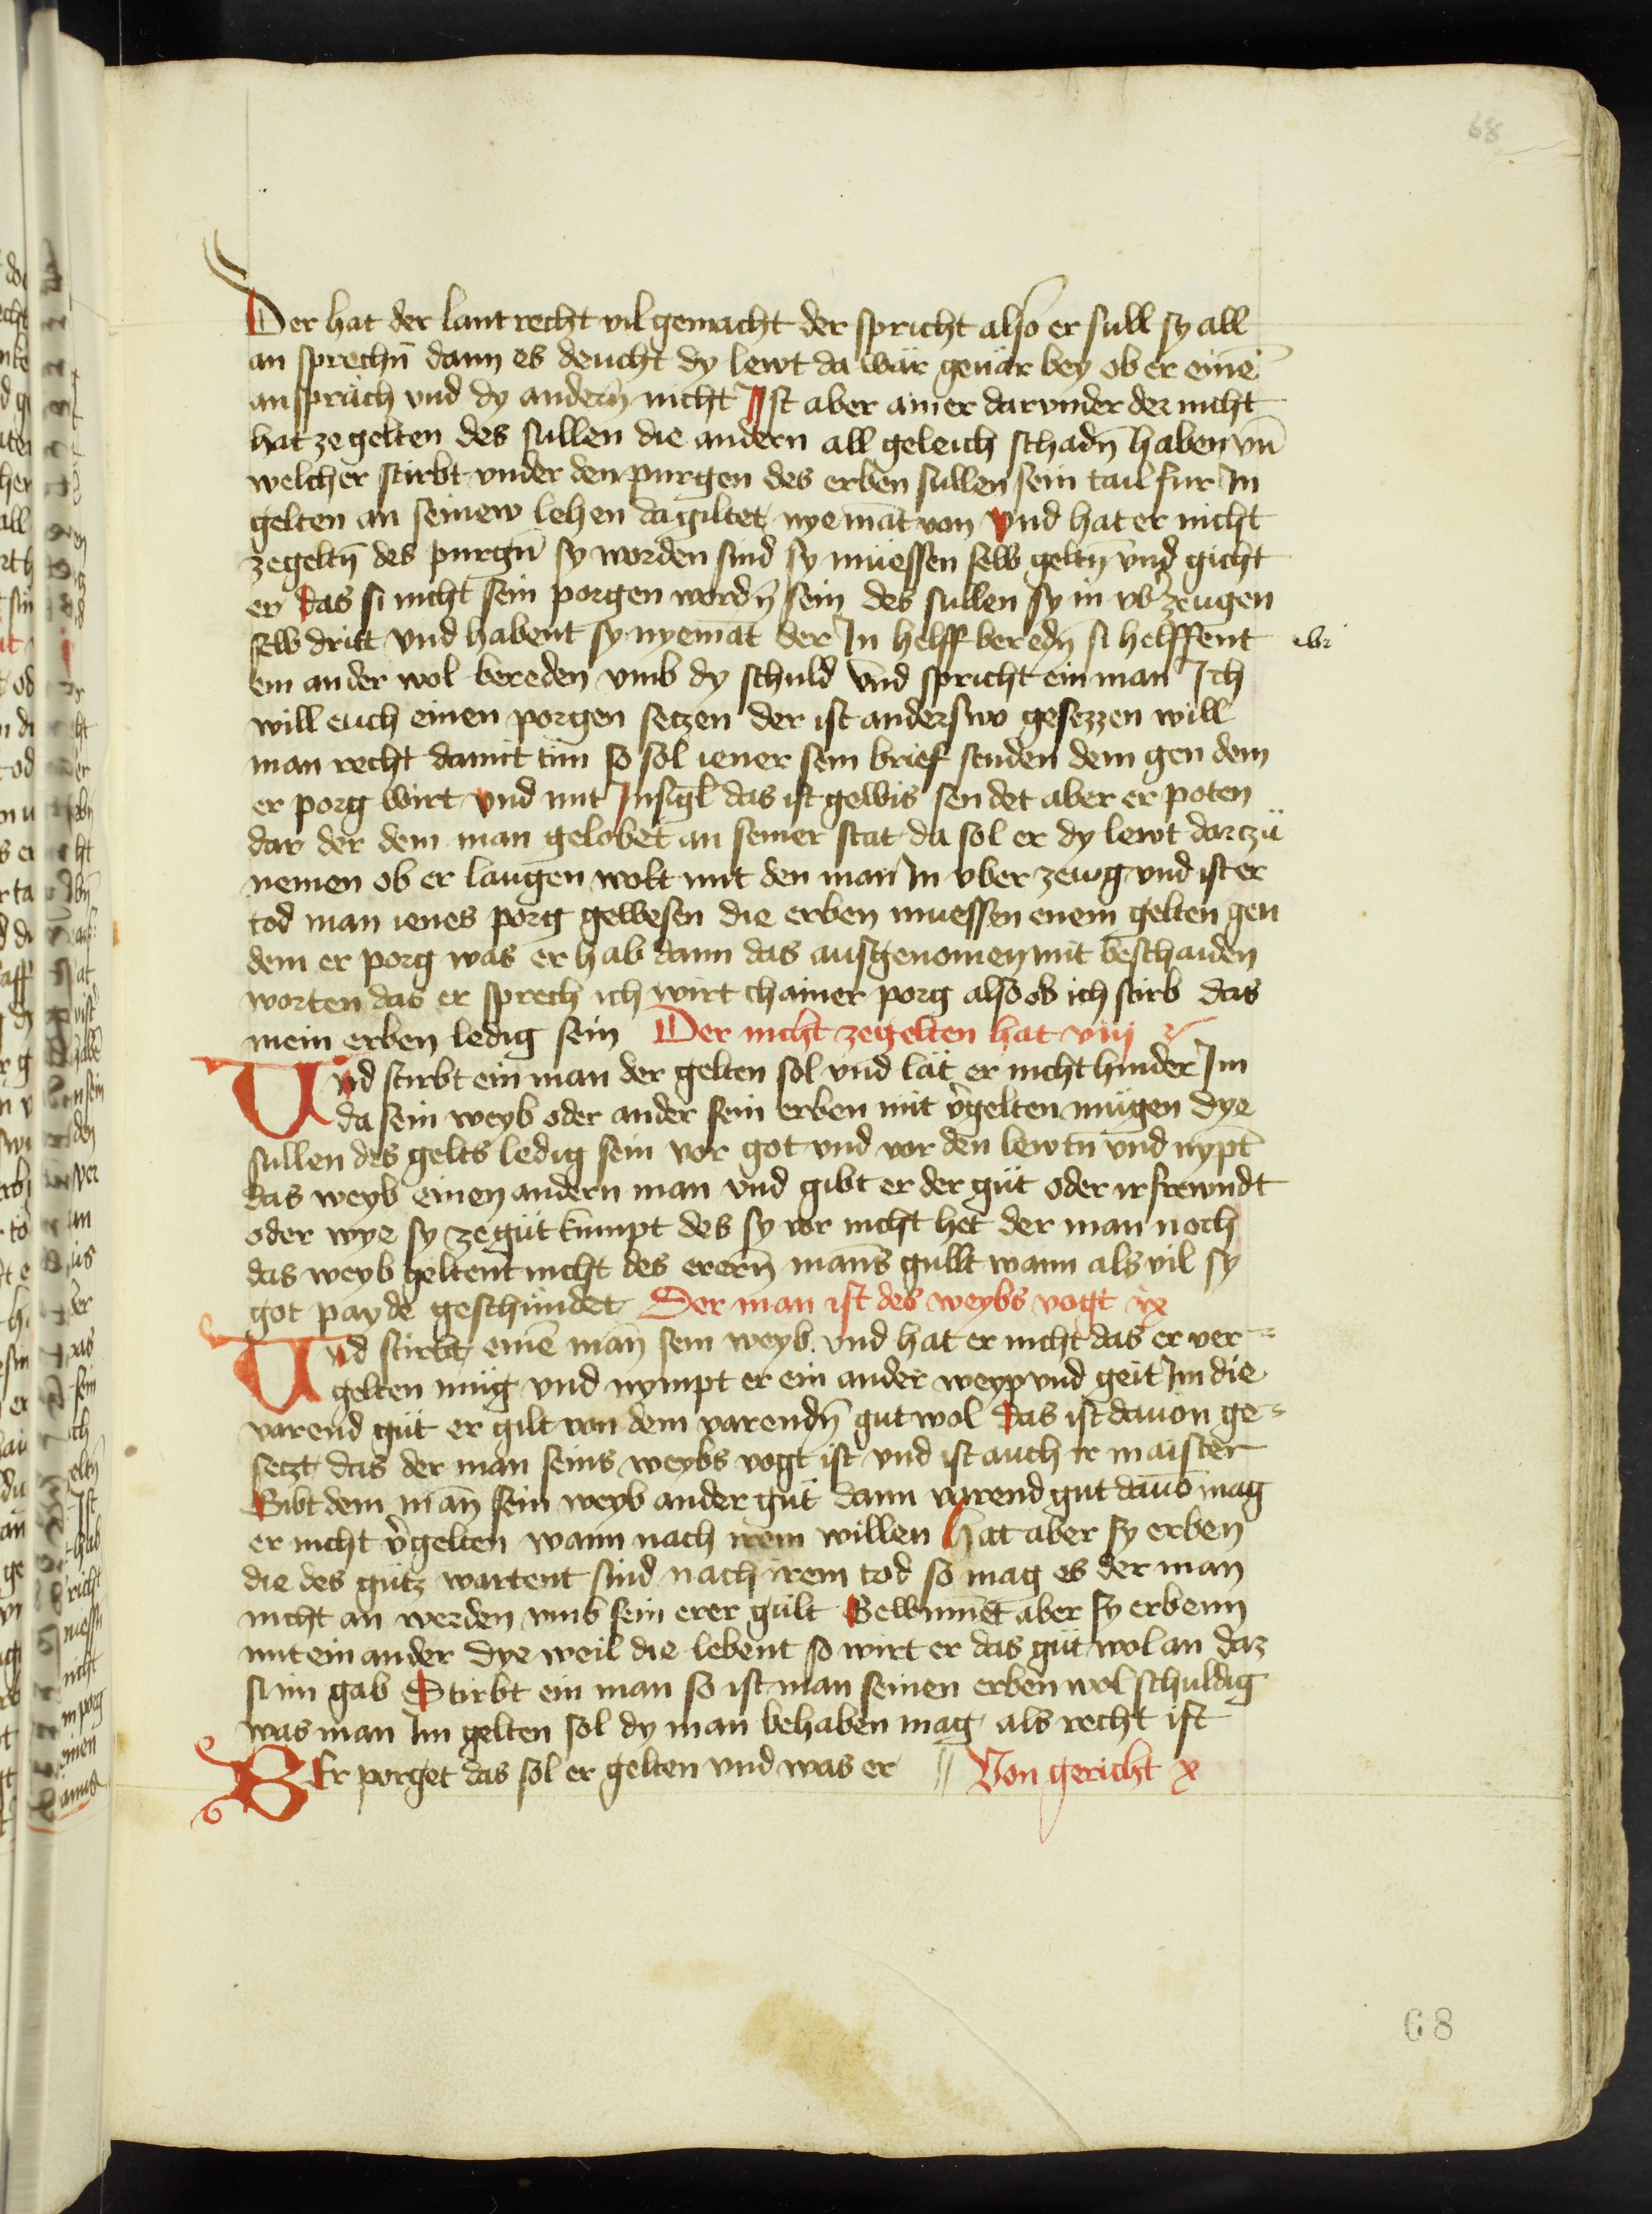 68
Der hat der lantrecht vil gemacht der spricht also er süll sy all
an sprechn̄ dann es deucht dy lewt da wär geuär bey ob er einē
ansprāch vnd dy andern̄ nicht Ist aber ainer darvnder der nicht
hat ze gelten des sullen die andern all geleich schadn̄ haben vn̄
welcher stirbt vnder den purgen des erben sullen sein tail fur In
gelten an seinew lehen da giltet nyemāt von vnd hat er nicht
zegeltn̄ des purgn̄ sy worden sind sy müessen selb geltn̄ vnd gicht
er das si nicht sein porgen wordn̄ sein des sullen sy in vb̾zeugen
selb dritt vnd habent sy nyemāt der In helff beredn̄ si helffent
ein ander wol bereden vmb dy schuld vnd spricht ein man Ich
will euch einen porgen setzen der ist anderswo gesezzen will
man recht damit tün so sol iener sein brief senden dem gen dem
er porg wirt vnd mit Insigl̄ das ist gewis sendet aber er poten
dar der dem man gelobet an seiner stat da sol er dy lewt dartzü
nemen ob er laugen wolt mit den man In vber zewg vnd ist er
tod man ienes porg gewesen die erben muessen enem gelten gen
dem er porg was er hab dann das ausgenomen mit beschaiden
worten das er sprech ich wirt chainer porg also ob ich stirb das
mein erben ledig sein Der nicht zegelten hat viij
Vnd stirbt ein man der gelten sol vnd lät er nicht hinder Im
da sein weyb oder ander sein erben mit v̾gelten mügen dye
sullen des gelts ledig sein vor got vnd vor den lewtn̄ vnd nypt
das weyb einen andern man vnd gibt er der güt oder ir frewndt
oder wye sy ze güt kumpt des sy vor nicht het der man noch
das weyb geltent nicht des erern̄ mans gullt wann als vil sy
got payde geschündet Der man ist des weybs vogt ix
Vnd stirbt einē man sein weyb. vnd hat er nicht das er ver=
gelten müg vnd nympt er ein ander weyp vnd geit Im die
varend güt er gilt von dem varendn̄ gut wol das ist dauon ge=
setzt das der man seins weybs vogt ist vnd ist auch ir maister
Gibt dem man sein weyb ander güt dann varend gut dauō mag
er nicht v̾gelten wann nach irem willen hat aber sy erben
die des gütz wartent sind nach irem tod so mag es der man
nicht an werden vmb sein erer gült Gewinnet aber sy erbenn
mit ein ander dye weil die lebent so wirt er das güt wol an daz
si im gab Stirbt ein man so ist man seinen erben wol schuldig
was man Im gelten sol dy man behaben mag als recht ist
BEr porget das sol er gelten vnd was er // Von gericht x
68